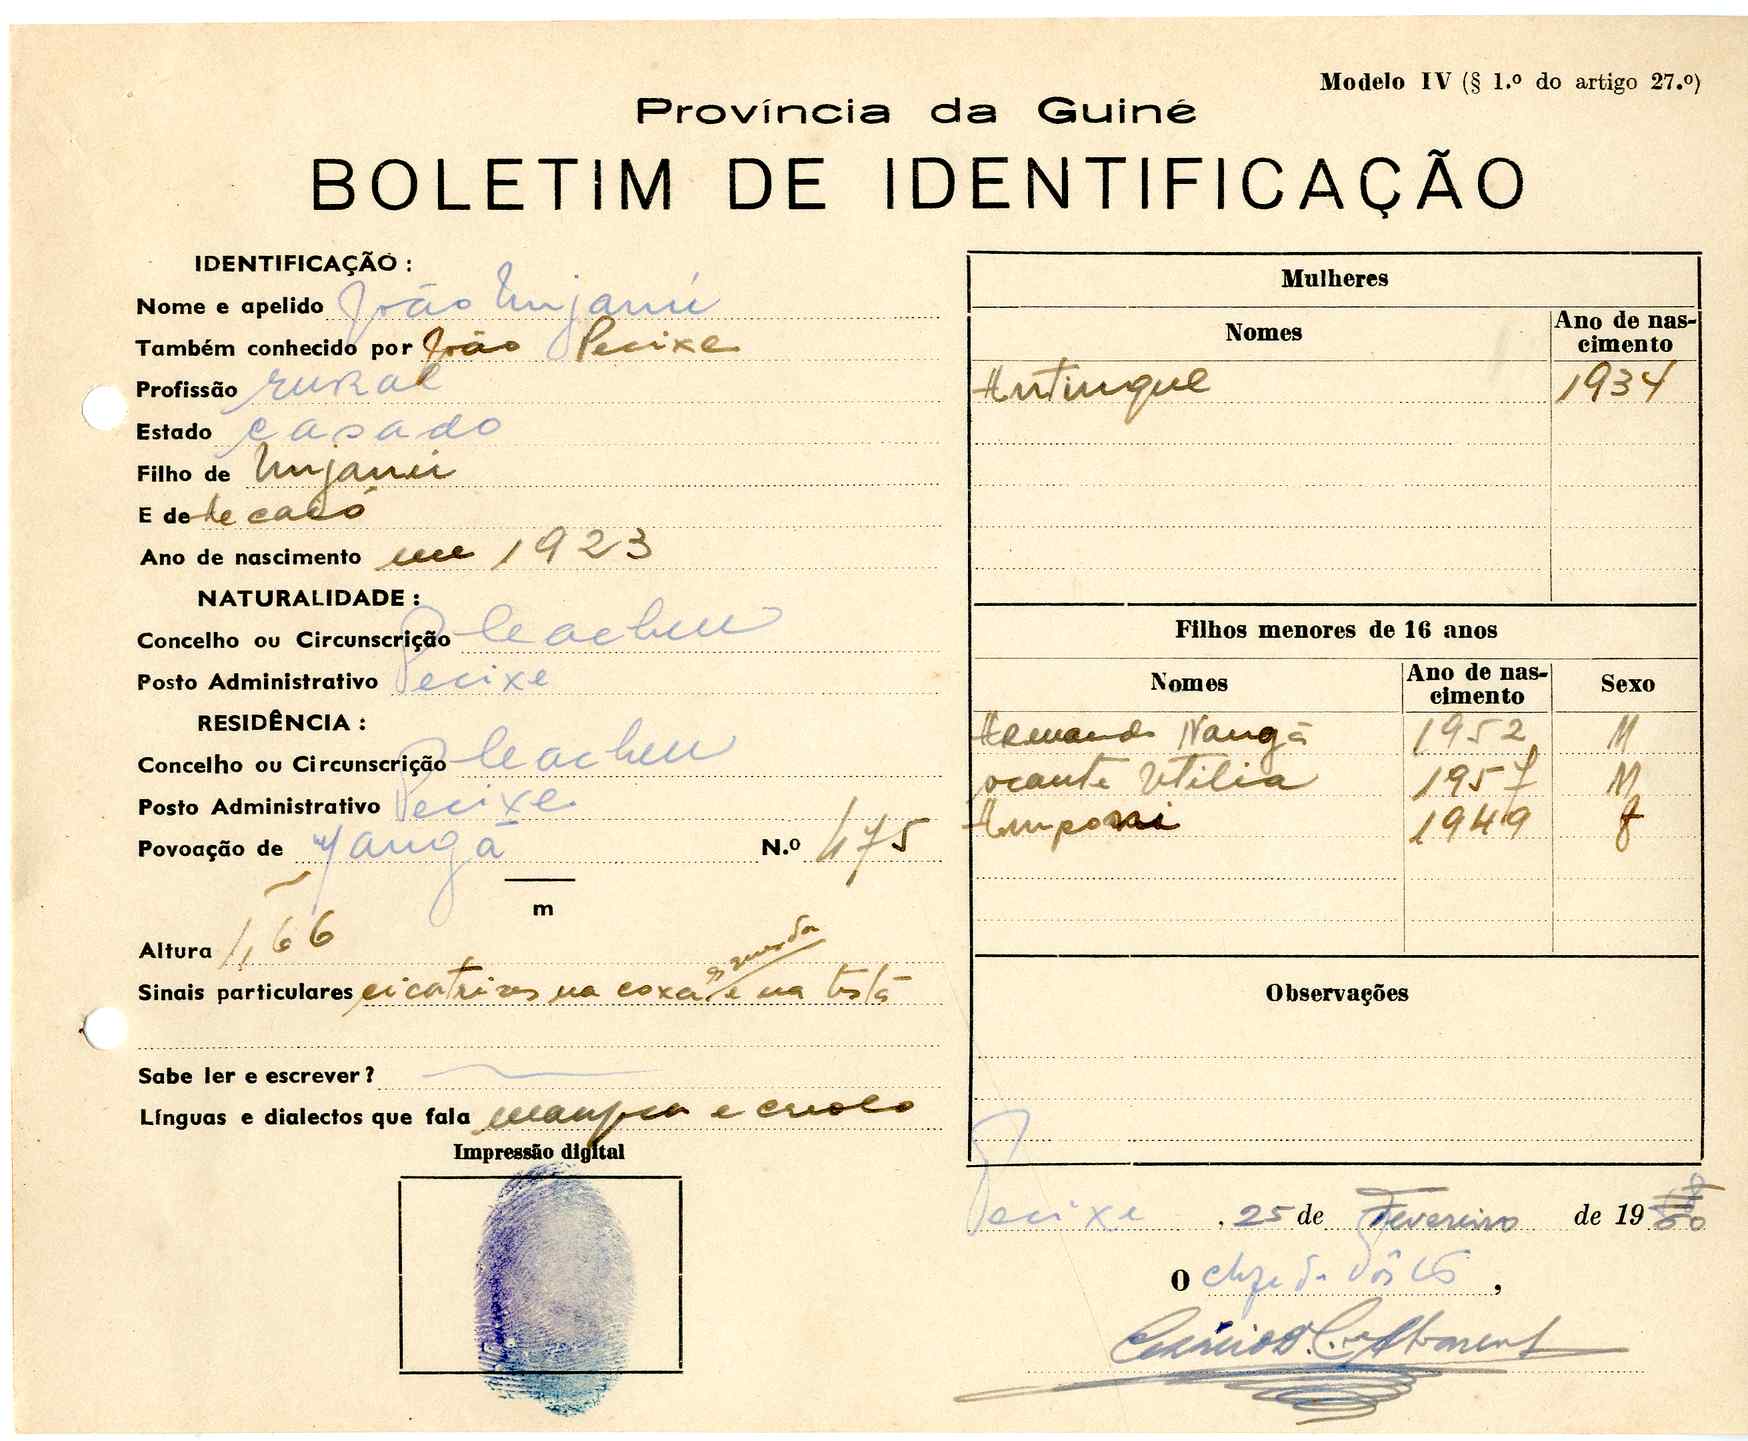 Modelo IV (§ 1.º do artigo 27.º)
Província da Guiné
BOLETIM DE IDENTIFICAÇÃO
IDENTIFICAÇÃO :
Nome e apelido João
Também conhecido por João Pecixe
Profissão rural
Estado casado
Filho de
E de
Ano de nascimento em 1923
NATURALIDADE :
Concelho ou Circunscrição
Posto Administrativo Pecixe
RESIDÊNCIA :
Concelho ou Circunscrição
Posto Administrativo Pecixe
Povoação de N.º 475
m
Altura 1,66
esquerda
Sinais particulares cicatrizes na coxa e na testa
Sabe ler e escrever?
Línguas e dialectos que fala e creolo
Impressão digital
Mulheres
Nomes Ano de nas-
cimento
1934
Filhos menores de 16 anos
Nomes Ano de nas-
cimento Sexo
Armando Nangã 1952 M
1957 M
1949 f
Observações
Pecixe, 25 de Fevereiro de 19
O chefe do Pôsto,